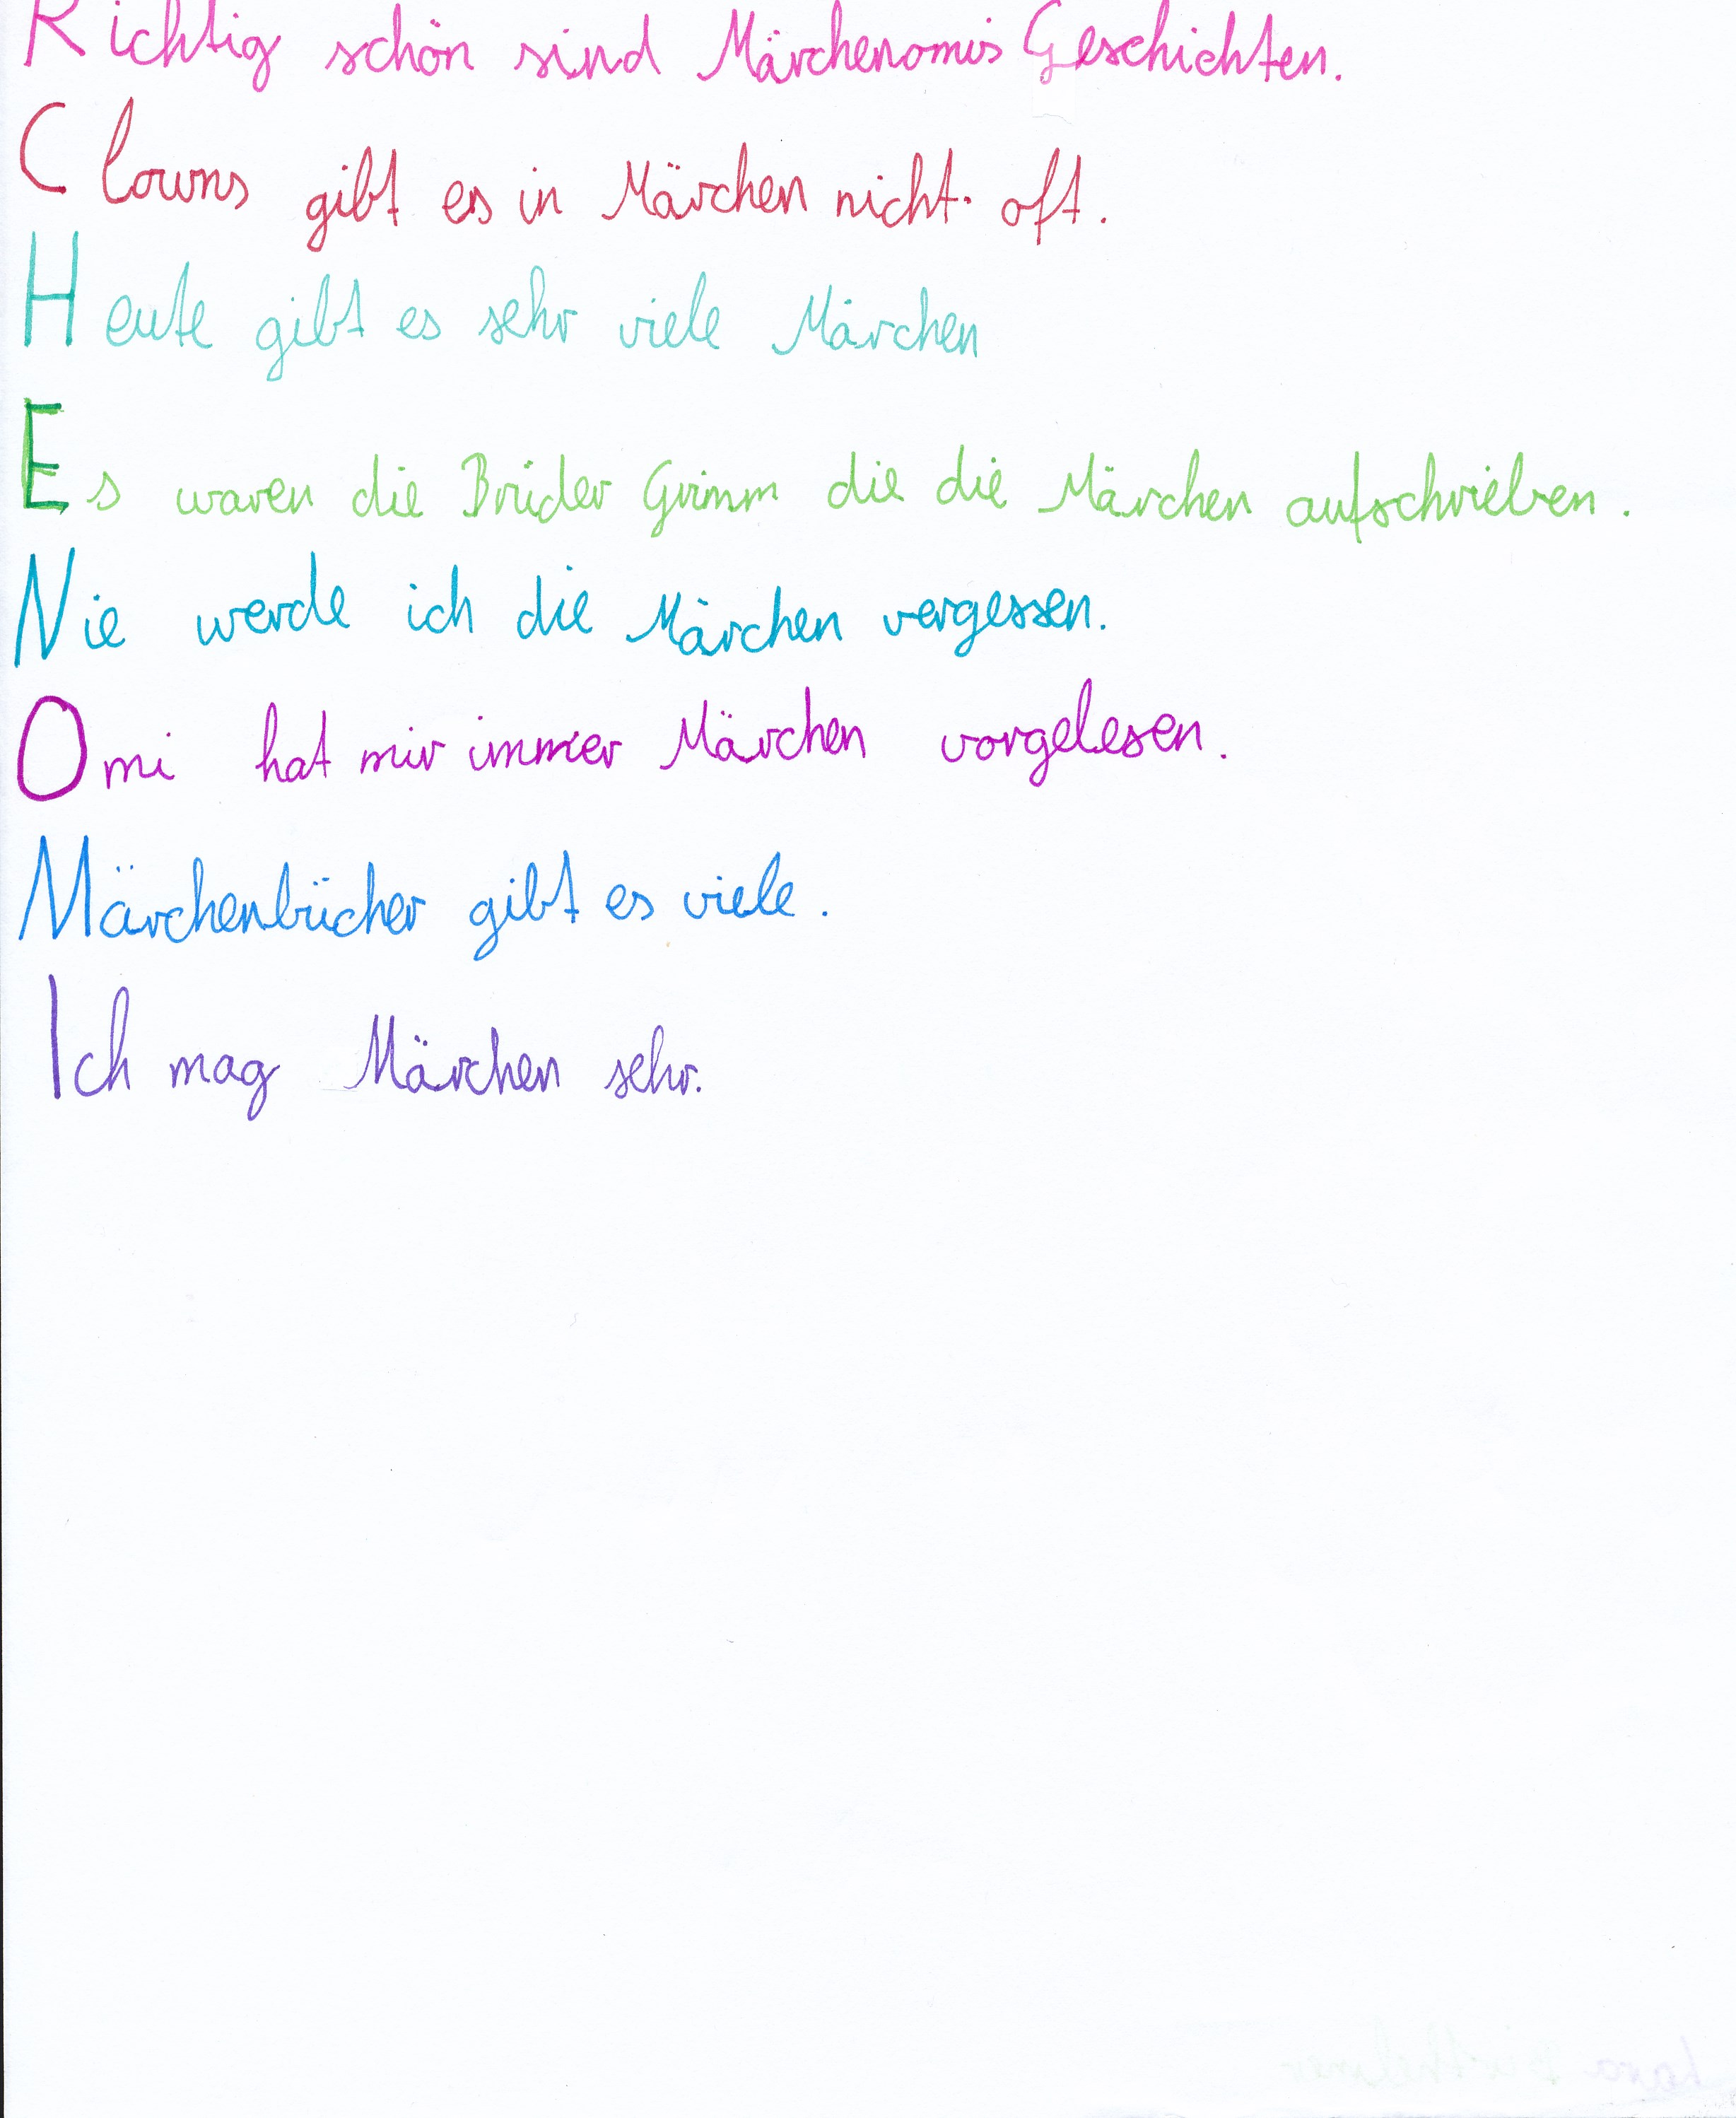 Richtig schön sind Märchenomis Geschichten.
Clowns gibt es in Märchen nicht oft.
Heute gibt es sehr viele Märchen
Es waren die Brüder Grimm die die Märchen aufschrieben.
Nie werde ich die Märchen vergessen.
Omi hat mir immer Märchen vorgelesen.
Märchenbücher gibt es viele.
Ich mag Märchen sehr.